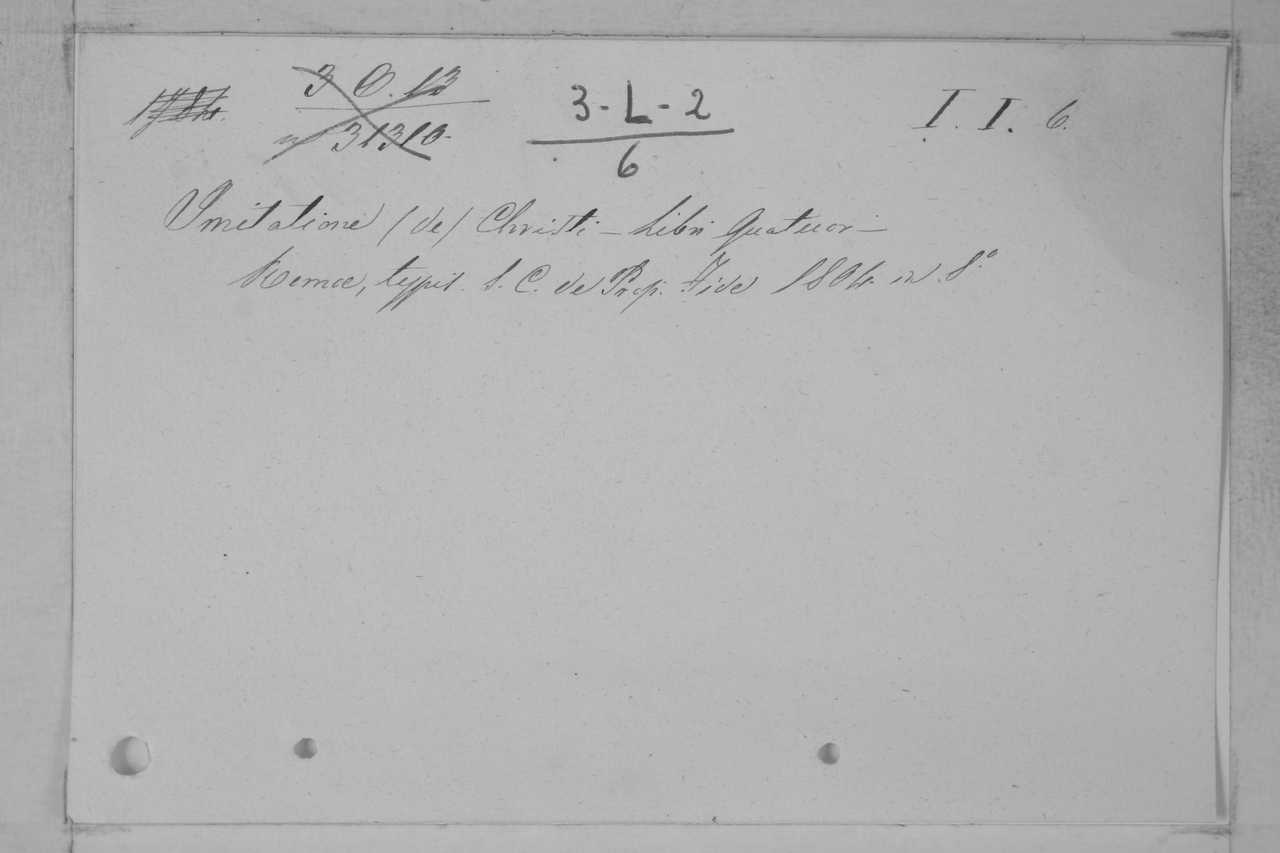 3 O. 13 3-L-2 I. I. 6.
31310 6
Imitatione (de) Christi – Libri quatuor –
Romae, typis. S. C. de Prop. Fide 1804. in 8.º